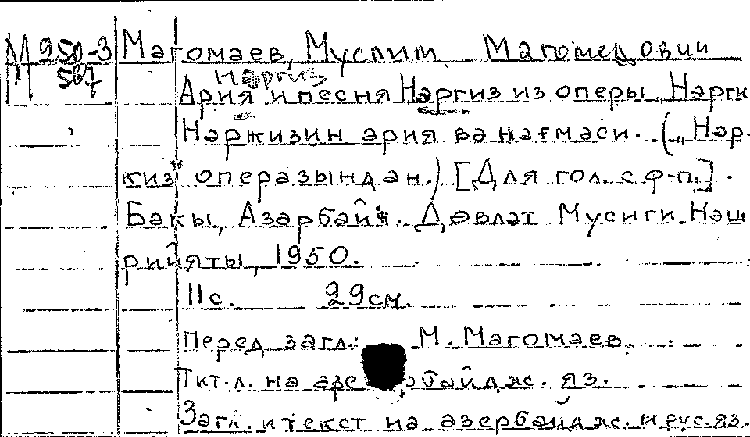 М 950-3 Магомаев, Муслим Магомедович
М 567 Наргиз
Ария и песня Наргиз из оперы Нарги
Наркизин ария ва нағмаси. („Нар-
киз" операзындан.) [Для гол. с ф-п.].
Бакы, Азәрбайҹ. Дәвлат Мусиги Нәш
рийяты, 1950.
11с. 29см.
Перед загл.: М. Магомаев.
Тит. л. на азербайдж. яз.
Загл. и текст на азербайдж. и рус. яз.